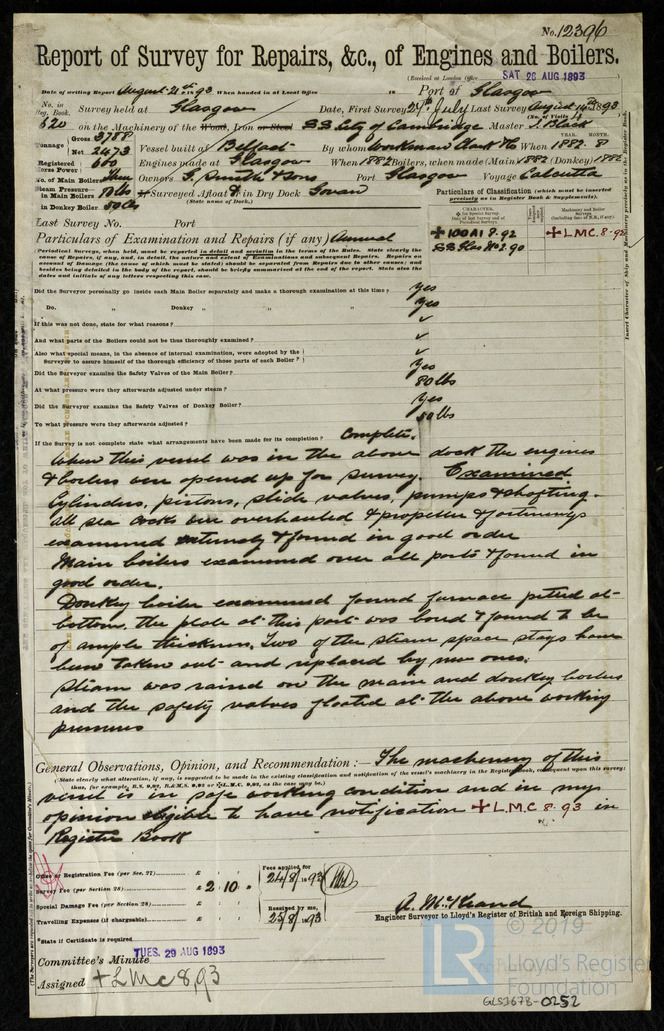 No. 12396
Report of Survey for Repairs, &c., of Engines and Boilers.
(Received at London Office SAT 26 AUG 1893
Date of writing Report August 21st 93 When handed in at Local Office 18 Port of Glasgow
No. in Reg. Book. Survey held at Glasgow Date, First Survey 27th July Last Survey August 14th 1893
(No. of Visits 4)
620 on the Machinery of the Wood, Iron or Steel S.S. City of Cambridge Master J. Black
Tonnage Gross 3788 Net 2473 Vessel built of Belfast By whom Workman Clark & Co When 1882. 8
YEAR. MONTH.
Registered Horse Power 600 Engines made at Glasgow When 1882 Boilers, when made (Main) 1882 (Donkey) 1882
No. of Main Boilers Owners G. Smith & Sons Port Glasgow Voyage Calcutta
Steam Pressure in Main Boilers 80 lbs If Surveyed Afloat or in Dry Dock Govan
(State name of Dock.)
in Donkey Boiler 50 lbs
Particulars of Classification (which must be inserted precisely as in Register Book & Supplements).
Last Survey No. Port
CHARACTER.
Machinery and Boiler Surveys
✠ 100A1 8.92
SS Gls No2.90
✠ L.M.C. 8.92
Particulars of Examination and Repairs (if any) Annual
Did the Surveyor personally go inside each Main Boiler separately and make a thorough examination at this time? Yes
Do. " Donkey " " " Yes
If this was not done, state for what reasons? ✓
And what parts of the Boilers could not be thus thoroughly examined? ✓
Also what special means, in the absence of internal examination, were adopted by the
Surveyor to assure himself of the thorough efficiency of those parts of each Boiler? ✓
Did the Surveyor examine the Safety Valves of the Main Boiler? Yes
At what pressure were they afterwards adjusted under steam? 80 lbs
Did the Surveyor examine the Safety Valves of Donkey Boiler? Yes
To what pressure were they afterwards adjusted? 50 lbs
If the Survey is not complete state what arrangements have been made for its completion? Complete.
When this vessel was in the above dock the engines
& boilers were opened up for survey. Examined
Cylinders, pistons, slide valves, pumps & shafting.
All sea cocks were overhauled & propeller & fastenings
examined externally & found in good order
Main boilers examined over all parts & found in
good order.
Donkey boiler examined found furnace pitted at
bottom, the plate at this part was bored & found to be
of ample thickness. Two of the steam space stays have
been taken out and replaced by new ones.
Steam was raised on the main and donkey boilers
and the safety valves floated at the above working
pressures
General Observations, Opinion, and Recommendation:— The machinery of this
(State clearly what alteration, if any, is suggested to be made in the existing classification and notification of the vessel's machinery in the Register Book, consequent upon this survey;
vessel is in safe working condition and in my
opinion eligible to have notification ✠ L.M.C 8.93 in
Register Book
Office or Registration Fee (per Sec. 27) £
Survey Fee (per Section 28) £ 2 10
Special Damage Fee (per Section 28) £
Travelling Expenses (if chargeable) £
Fees applied for 24/8/1893
Received by me, 25/8/1893
A. McKeand
Engineer Surveyor to Lloyd's Register of British and Foreign Shipping.
*State if Certificate is required
Committee's Minute TUES. 29 AUG 1893
Assigned +LMC 8,93
© 2019
LR Lloyd's Register
Foundation
GLS3678-0252